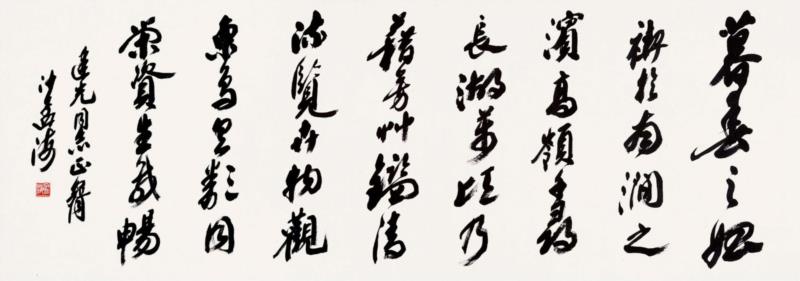 暮春之始
禊於南澗之
濱高嶺千尋
長湖萬頃乃
藉芳艸鑑清
流覽卉物觀
魚鳥具類同
榮資生咸暢
光同志正
沙孟海